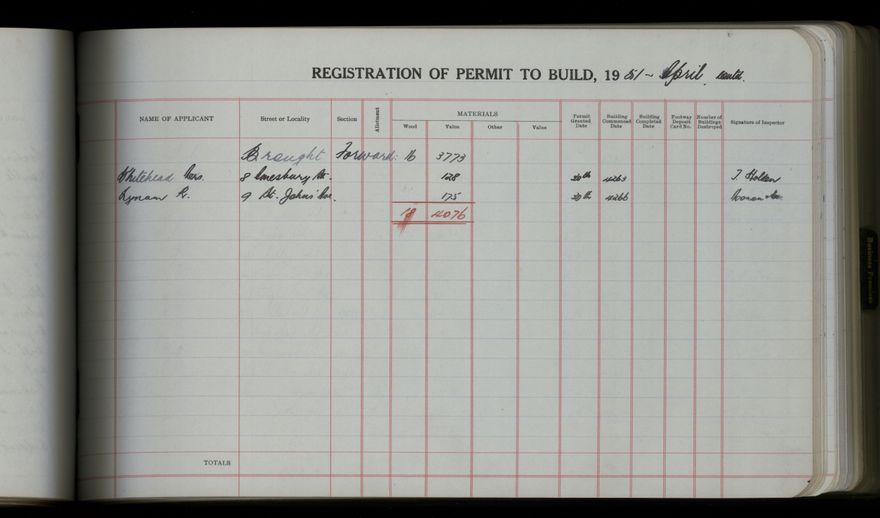 REGISTRATION OF PERMIT TO BUILD, 1951 - April
NAME OF APPLICANT
Street or Locality
Section
Allotment
MATERIALS
Wood
Value
Other
Value
Permit Granted Date
Building Commenced Date
Building Completed Date
Footway Deposit Card No.
Number of Buildings Destroyed
Signature of Inspector
Brought Forward: 16 3773
Whitehead 8 St. 128 30th 4263 J. Holden
Lyman 9 St. Johns' Ave. 175 30th 4266
18 4076
TOTALS